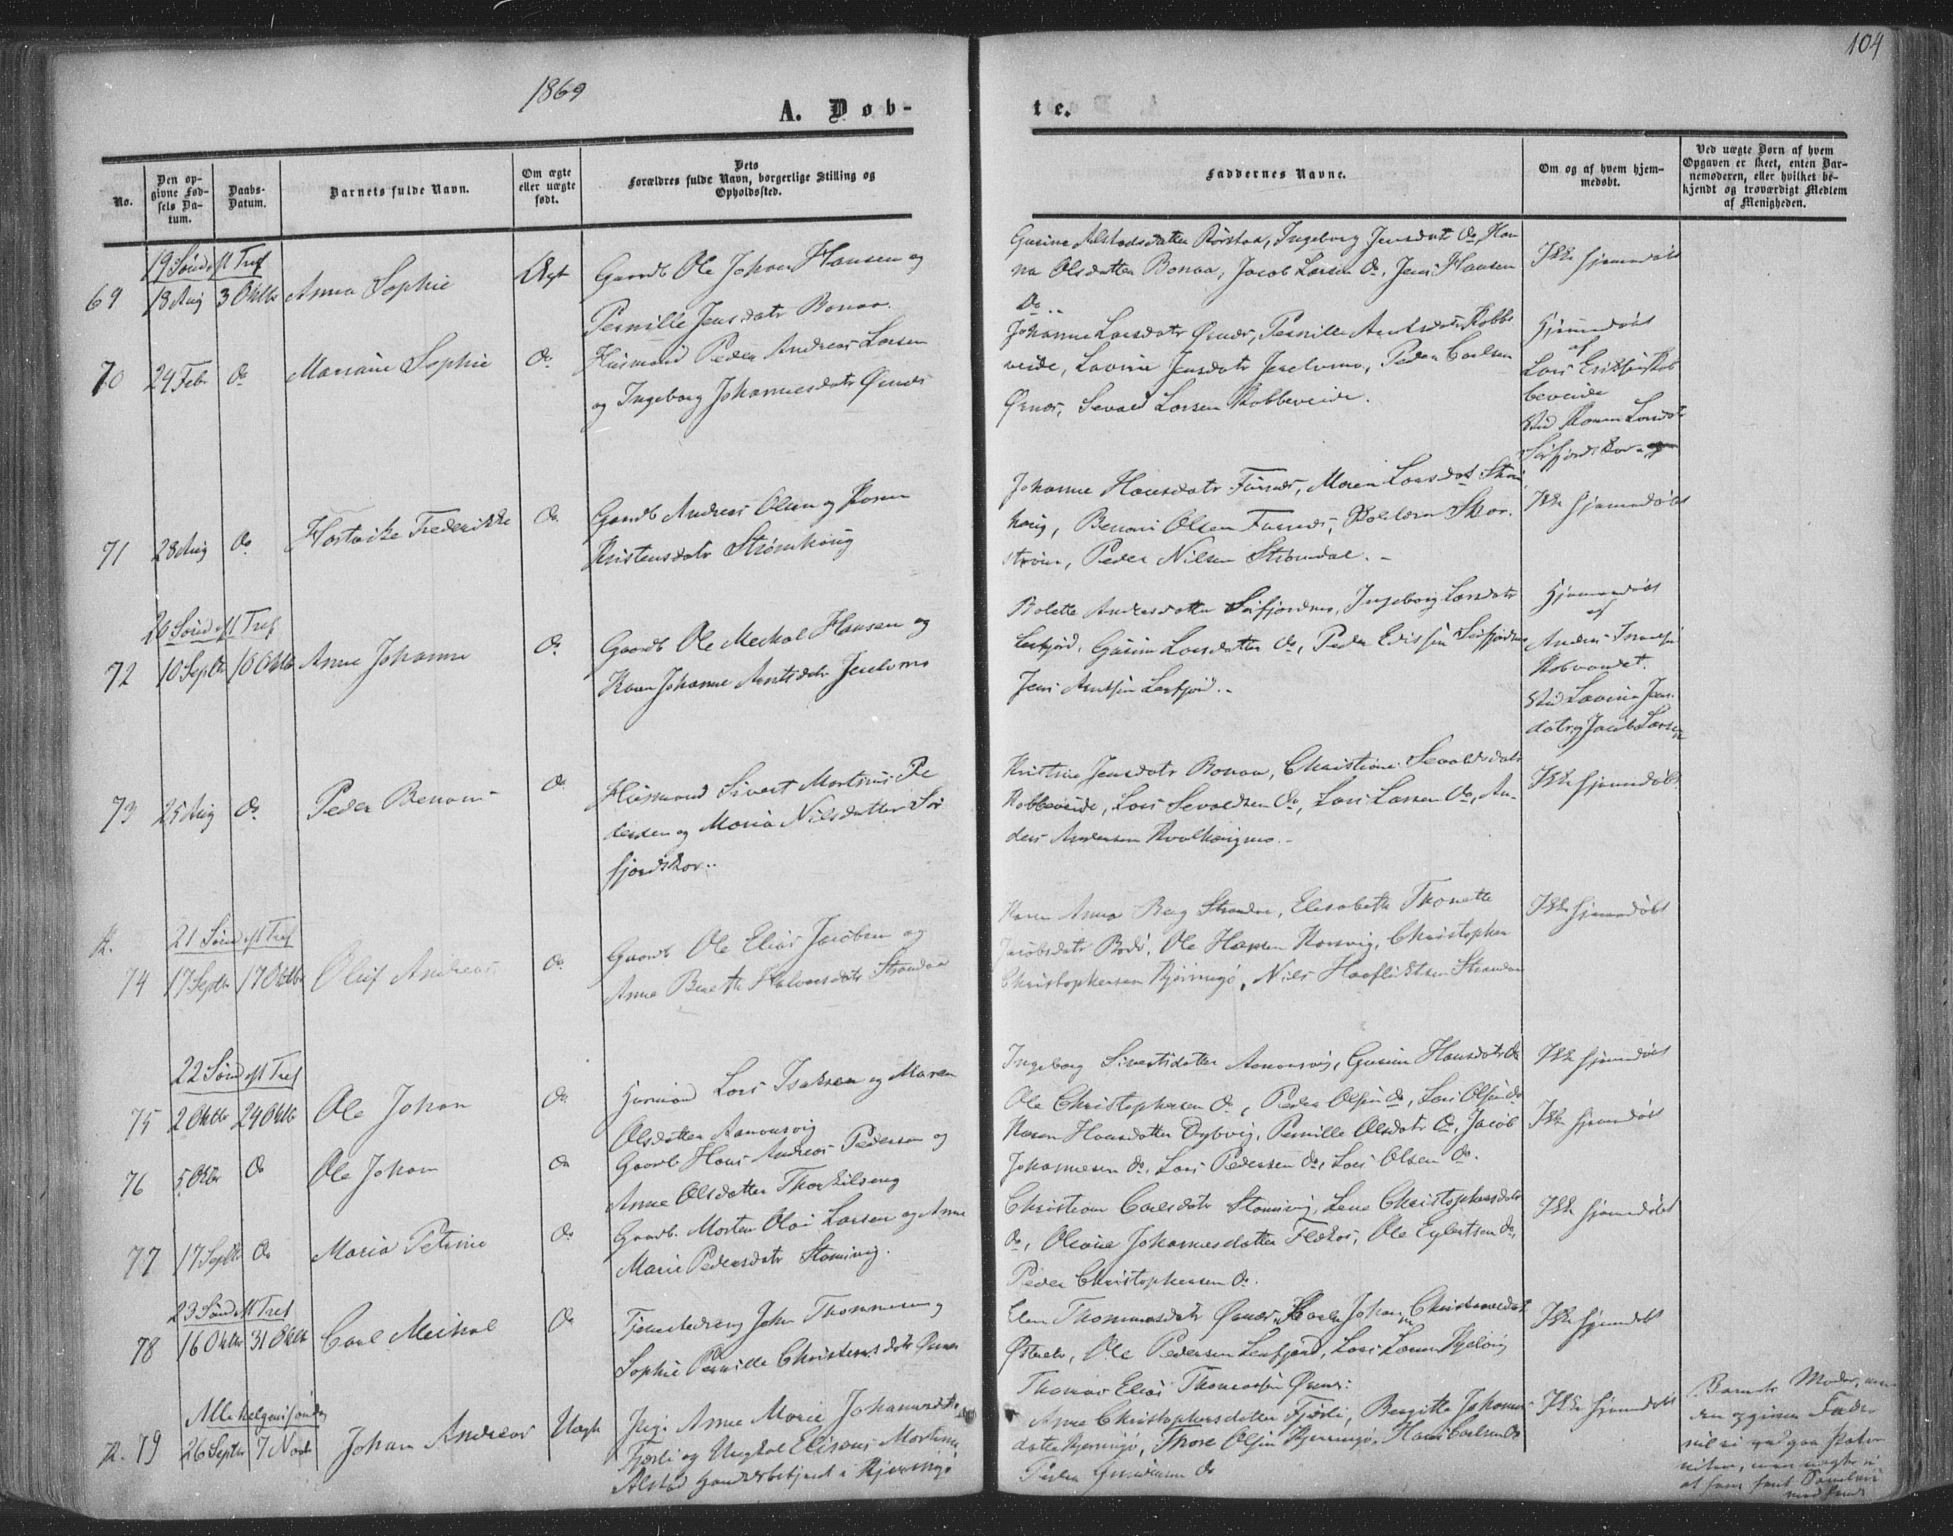 104
1869
A. Døb-
te.
No.
Den op-
givne Fød-
sels Da-
tum.
Daabs-
Datum.
Barnets fulde Navn.
Om ægte
eller uægte
født.
Dets
Forældres fulde Navn, borgerlige Stilling og
Opholdssted.
Faddernes Navne.
Om og af hvem hjem-
medøbt.
Ved uægte Børn af hvem
Opgaven er skeet, enten Bar-
nemoderen, eller hvilket be-
kjendt og troværdigt Medlem
af Menigheden.
19 Sønd eft Tref
69 18 Aug 3 Oktbr Anna Sophie Ægt Gaardb Ole Johan Hansen og
Pernille Jensdatr Bonaa.
Gusine Alstadsdatter Rørstaa, Ingeborg Jensdat Do, Han-
na Olsdatter Bonaa, Jacob Larsen Do, Jens Hansen
Do..
Ikke hjemmedøbt
70 24 Febr Do Mariane Sophie Do Husmand Peder Andreas Larsen
og Ingeborg Johannesdatr Ørnes
Johanne Larsdatr Ørnes, Pernille Robbe
veide, Lavine Jensdatr, Peder Carlsen
Ørnes, Sevald Larsen Robbeveide.
Hjemmedøbt
af
Lars Eriksen Rob
beveide
Vid Karen Larsdatr
Sørfjordskor
71 28 Aug Do Hartvike Frederikke Do Gaardb Andreas Olsen og Karen
Kristensdatr Strømhaug
Johanne Hansdatr Furnes, Maren Larsdat Strøm
haug, Benoni Olsen Furnes, Skor-
, Peder Nilsen Strømdal.-
Ikke hjemmedøbt
20 Sønd eft Tref
72 10 Septbr 10 Oktbr Anne Johanne Do Gaardb Ole Meckal Hansen og
Karen Johanne Arntsdatr
Bolette Andersdatter Sørfjorden, Ingeborg Larsdatr
Leifjord, Gusine Larsdatter Do, Peder Sørfjorden
Jens Arntsen Leifjord.-
Hjemmedøbt
af
Anders
.
Vid Lavine Jens-
datr og Jacob Larsen
73 25 Aug Do Peder Benoni Do Husmand Sivert Mortinus Pe
dersen og Maria Nilsdatter Sør
fjordskor..
Kristine Jensdatr Bonaa, Christiane Sevaldsdatr
Robbeveide, Lars Sevaldsen Do, Lars Larsen Do, An-
ders Andersen Kvalhaugmo.-
Ikke hjemmedøbt
21 Sønd eft Tref
74 17 Septbr 17 Oktbr Oluf Andreas Do Gaardb Ole Elias Jacobsen og
Anne Berethe Halvorsdatr Strandaa
Karen Anna Berg Strandaa, Elisabeth Thonette
Jacobsdatr Bodø, Ole Hansen Korsvig, Christopher
Christophersen Kjerringø, Nils Strandaa
Ikke hjemmedøbt
22 Sønd eft Tref
75 2 Oktbr 24 Oktbr Ole Johan Do Husmand Lars Isaksen og Maren
Olsdatter Aanonsvig
Ingeborg Sivertsdatter Aanonsvig, Gusine Hansdatr Do
Ole Christophersen Do, Peder Olsen Do, Lars Olsen Do
Ikke hjemmedøbt
76 5 Oktbr Do Ole Johan Do Gaardb Hans Andreas Pedersen og
Anne Olsdatter Thorkilseng
Karen Hansdatter Dybvig, Pernille Olsdatr Do, Jacob
Johannesen Do, Lars Pedersen Do, Lars Olsen Do.
Ikke hjemmedøbt
77 17 Septbr Do Maria Petrine Do Gaardb. Morten Olai Larsen og Anne
Marie Pedersdatr Storvig.
Christiane Carlsdatr Storvig, Lene Christophersdatr
Do, Oleane Johannesdatter Flekos, Ole Eylertsen Do,
Peder Christophersen Do.
Ikke hjemmedøbt
23 Sønd eft Tref
78 16 Oktbr 31 Oktbr Carl Meikal Do John Thommesen og
Sophie Pernille Christensdatr Ørnes
Elen Thommasdatr Ørnes, Karen Johan Christensdatr
, Ole Pedersen Leifjord, Lars Larsen
Thomas Elias Thomassen Ørnes.
Ikke hjemmedøbt
Allehelgensøndag
79 26 Septbr 7 Novbr Johan Andreas Uægt Pige Anne Marie Johannesdtr
Fjærli og Ungkal Elisæus Mortinus
Alstad Handelsbetjent i Kjerringø
Anne Christophersdatter Fjærli, Bergitte Johannes
datter Kjerringø, Thore Olsen Kjerringø, Hans Carlsen Do
Peder Do
Ikke hjemmedøbt
Barnets Moder, men
den opgivne Fader
vil ei vedgaa Pater
niteten, men nægter ei
at have havt Samleie
med hende